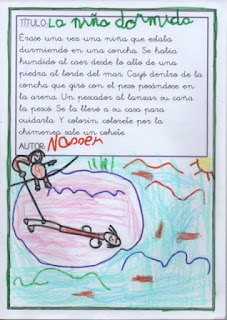 TÍTULO: La niña dormida
Erase una vez una niña que estaba
durmiendo en una concha. Se había
hundido al caer desde lo alto de una
piedra al borde del mar. Cayó dentro de la
concha que giró con el peso posándose
en la arena. Un pescador al lanzar su caña
la pescó. Se la llevó a su casa para
cuidarla. Y colorín, colorete por la
chimenea sale un cohete.
AUTOR: Nasser